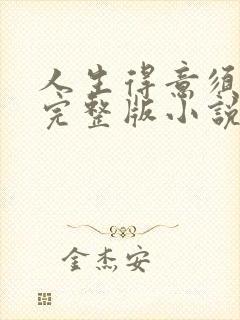 人生得意須
完整版小說
金杰安